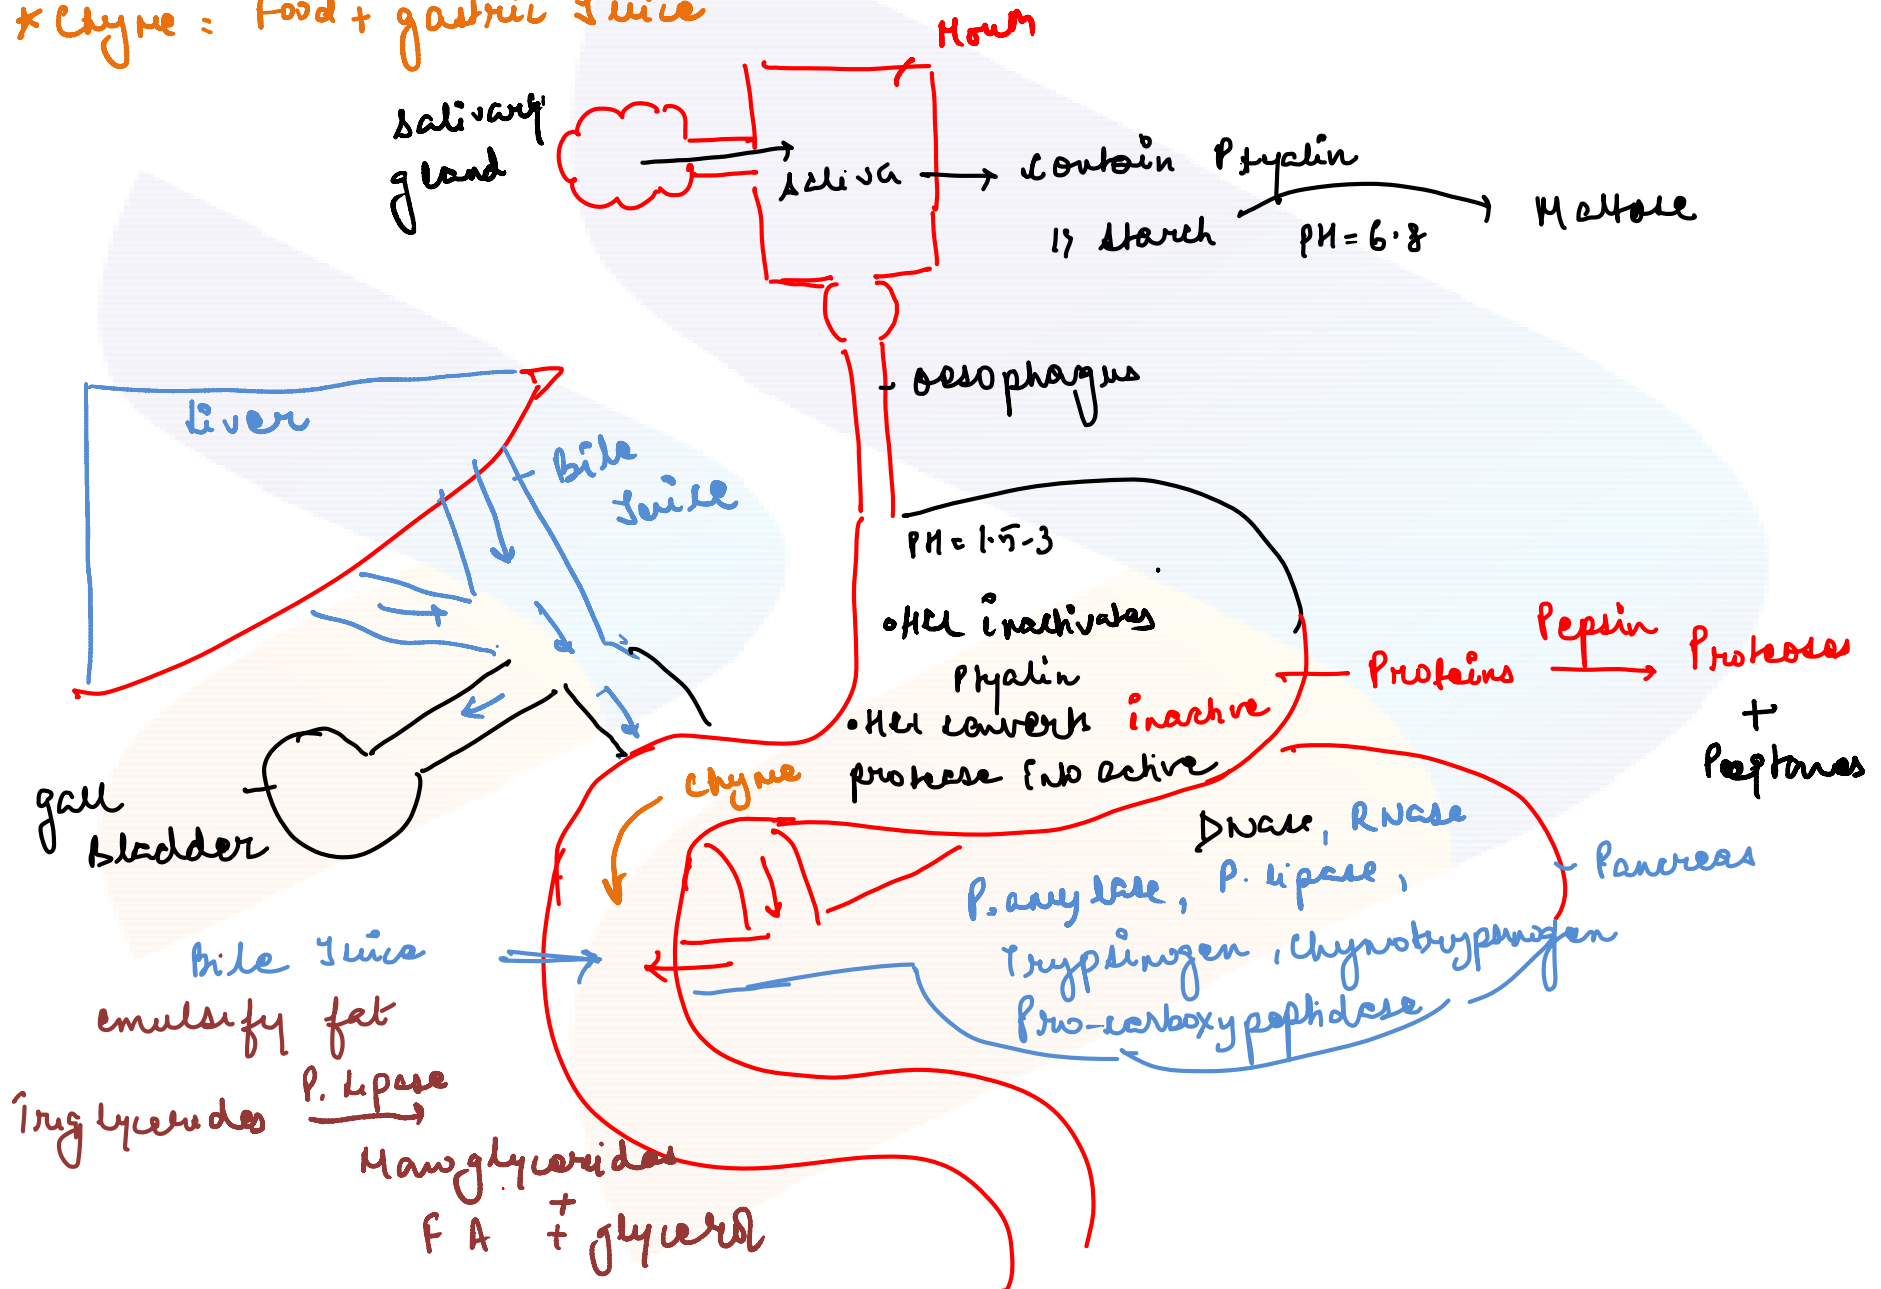 * Chyme = Food + gastric Juice
Mouth
Salivary
gland
Saliva
Contain Ptyalin
1) Starch
PH = 6.8
Maltose
Oesophagus
Liver
Bile
Juice
PH = 1.5-3
• HCl inactivates
Ptyalin
• HCl converts inactive
protease into active
Proteins
Pepsin
Proteoses
+
Peptones
gall
Bladder
Chyme
DNase, RNase
P. amylase, P. lipase,
Trypsinogen, Chymotrypsinogen
Pro-carboxypeptidase
Pancreas
Bile Juice
emulsify fat
Triglycerides
P. Lipase
Monoglycerides
+
F A + glycerol